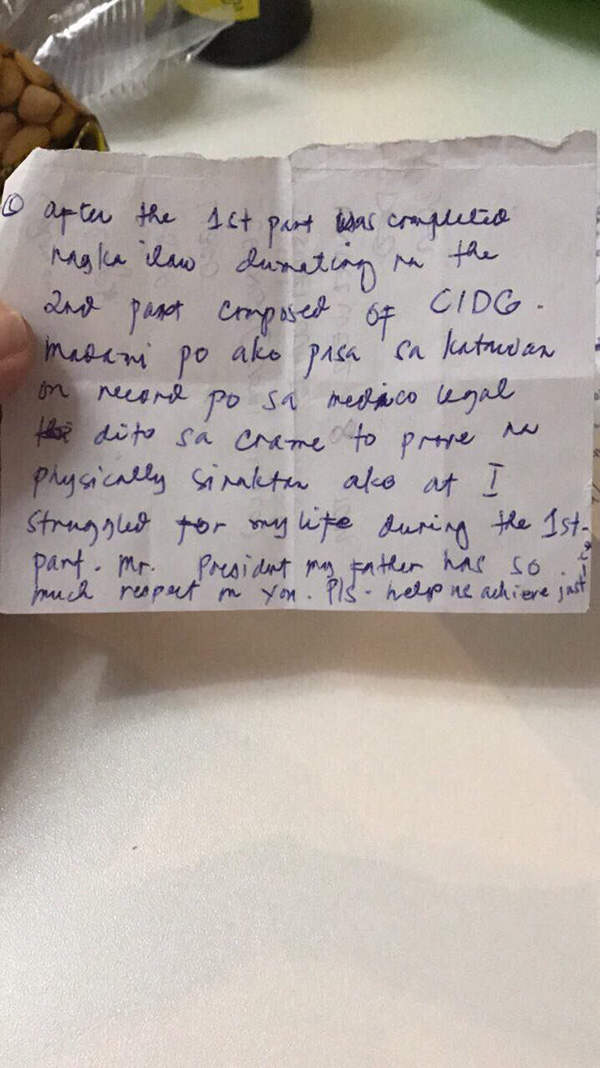 after the 1st part was completed
nagka ilaw dumating na the
2nd part composed of CIDG.
Madami po ako pasa sa katawan
on record po sa medico legal
dito sa crame to prove na
physically sinaktan ako at I
struggled for my life during the 1st
part. Mr. President my father has so
much respect in you. Pls. help us achieve just